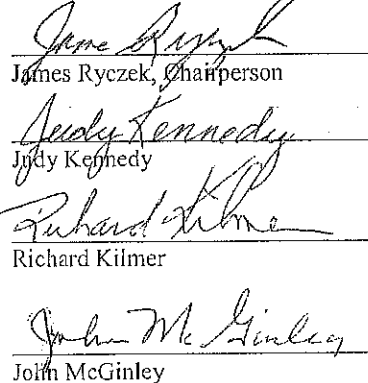 James Ryczek
James Ryczek, Chairperson
Judy Kennedy
Judy Kennedy
Richard Kilmer
Richard Kilmer
John McGinley
John McGinley